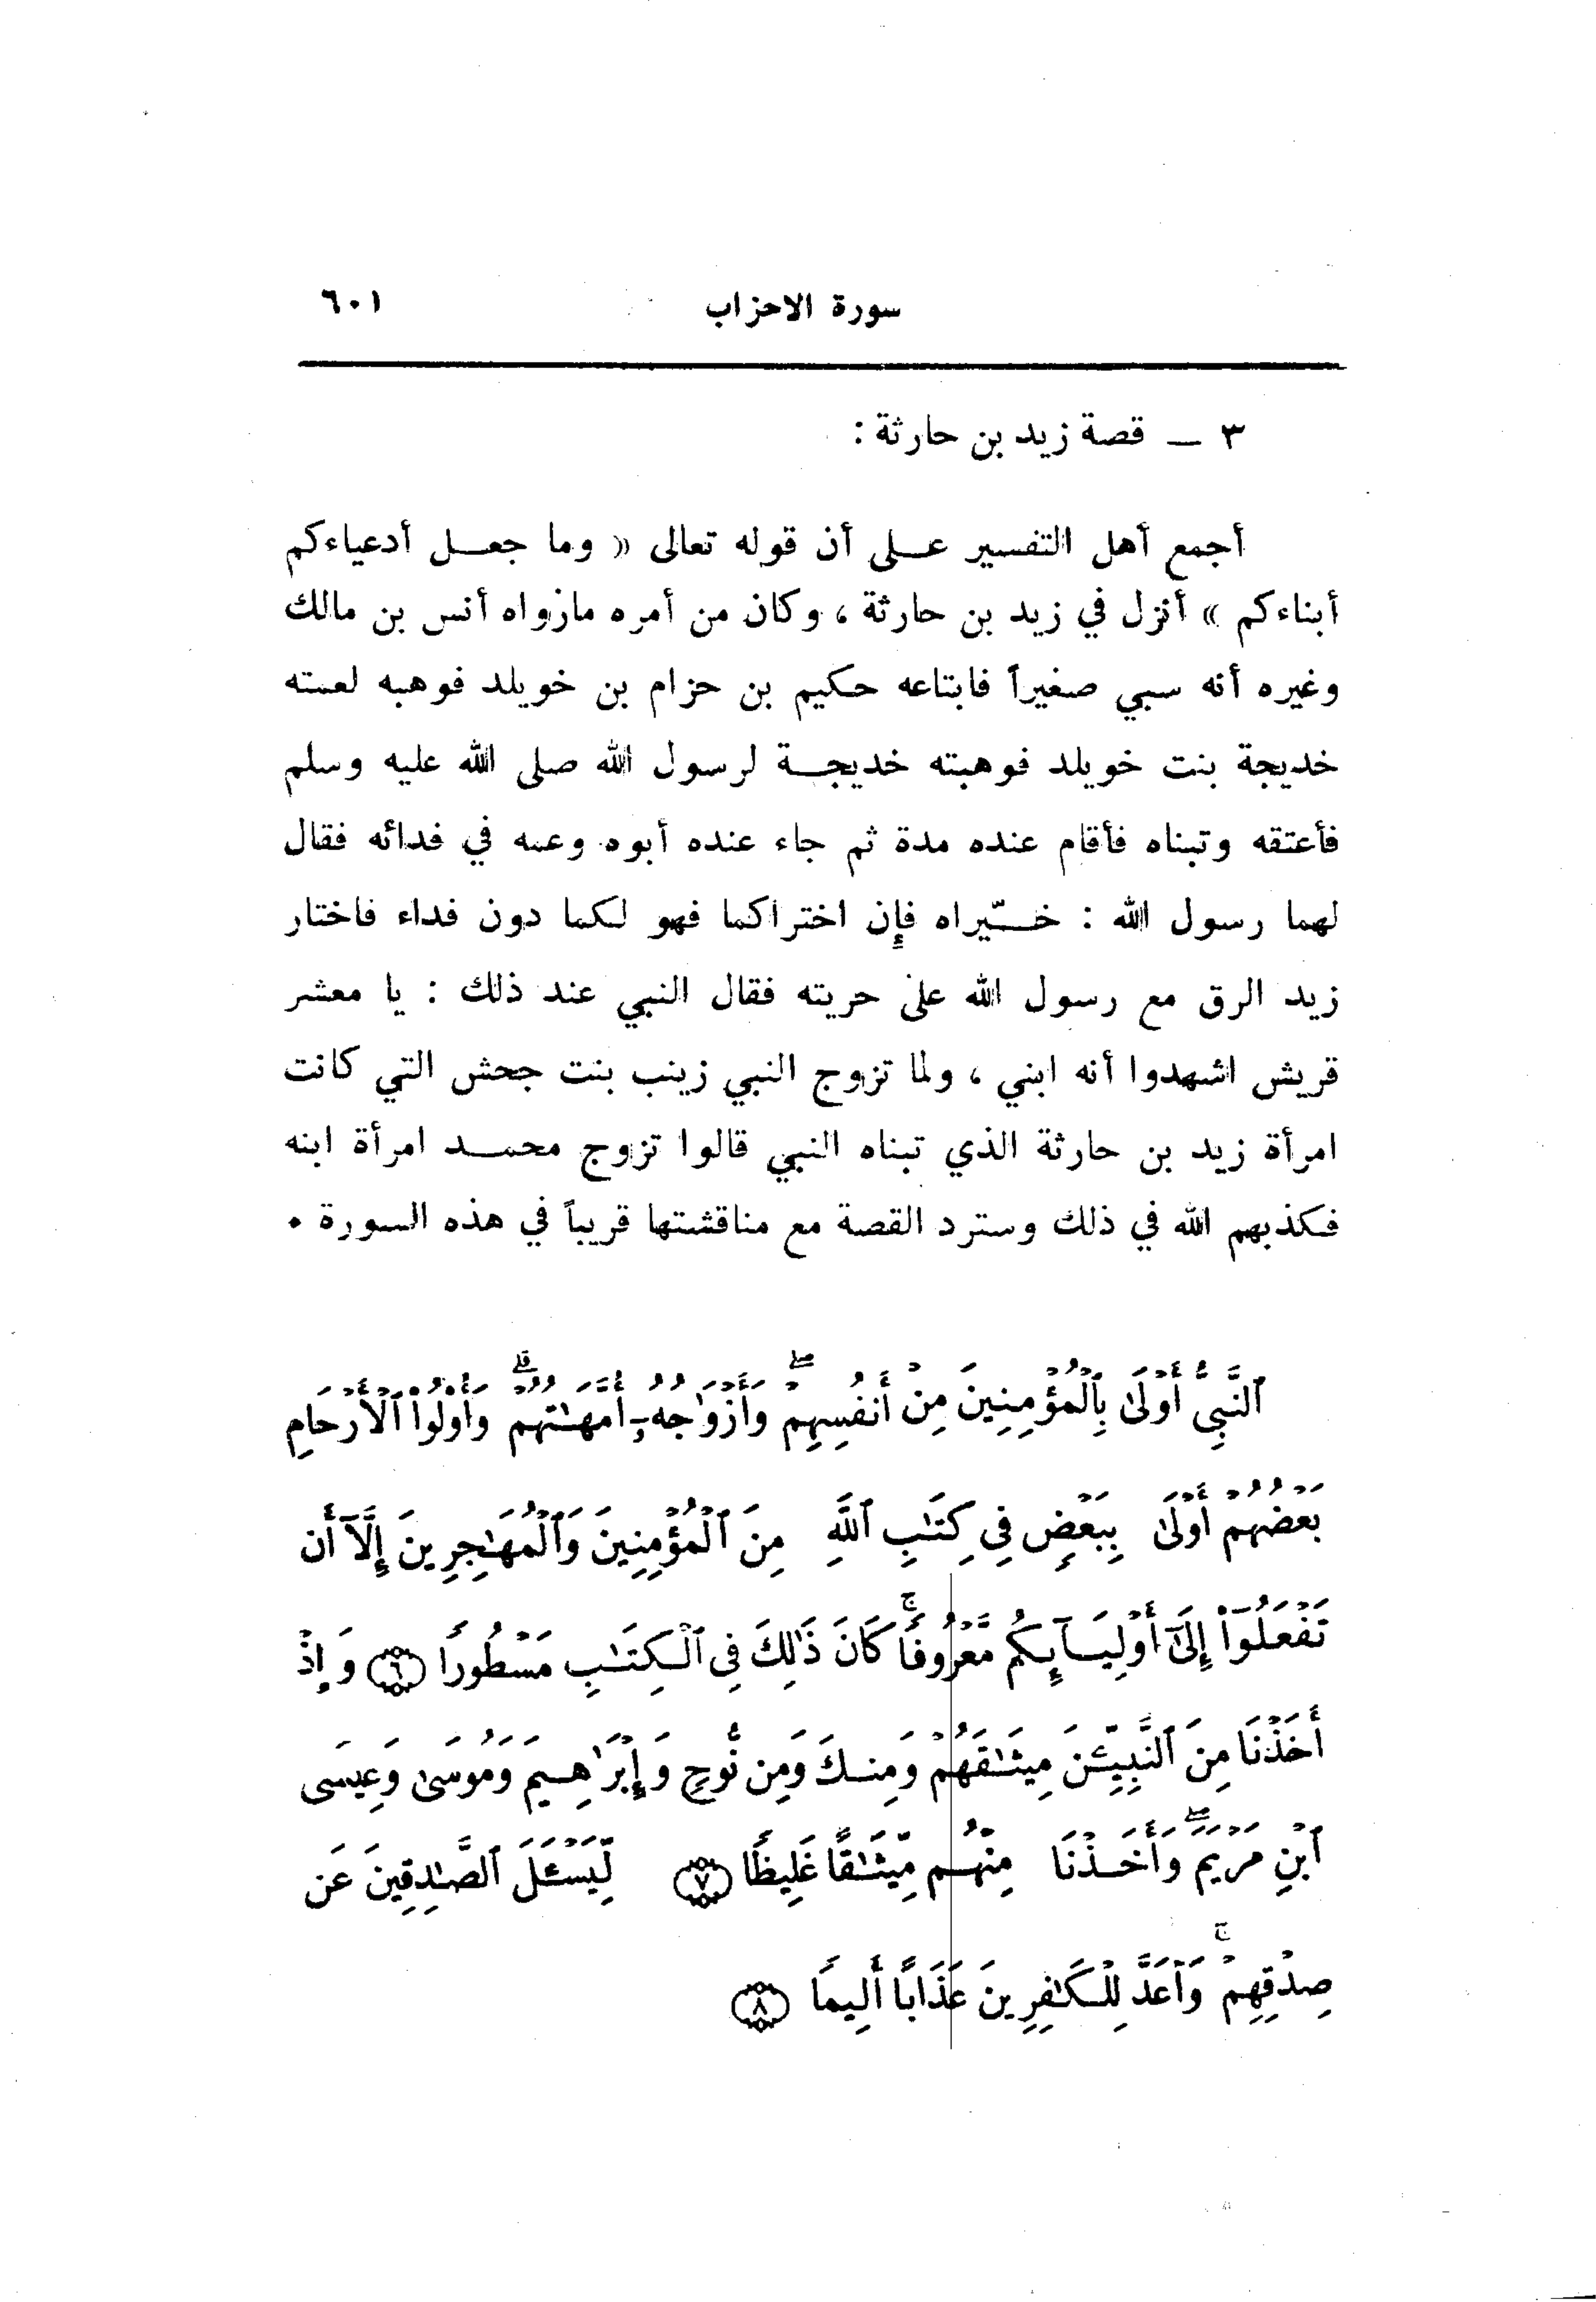 سورة الاحزاب ٦٠١
٣ ــ قصة زيد بن حارثة :
أجمع أهل التفسير عــلى أن قوله تعالى « وما جعــل أدعياءكم
أبناءكم » أنزل في زيد بن حارثة ، وكان من أمره مارواه أنس بن مالك
وغيره أنه سبي صغيراً فابتاعه حكيم بن حزام بن خويلد فوهبه لعمته
خديجة بنت خويلد فوهبته خديجــة لرسول الله صلى الله عليه وسلم
فأعتقه وتبناه فأقام عنده مدة ثم جاء عنده أبوه وعمه في فدائه فقال
لهما رسول الله : خــيّراه فإن اختراكما فهو لكما دون فداء فاختار
زيد الرق مع رسول الله على حريته فقال النبي عند ذلك : يا معشر
قريش اشهدوا أنه ابني ، ولما تزوج النبي زينب بنت جحش التي كانت
امرأة زيد بن حارثة الذي تبناه النبي قالوا تزوج محمــد امرأة ابنه
فكذبهم الله في ذلك وسترد القصة مع مناقشتها قريباً في هذه السورة •
ٱلنَّبِىُّ أَوْلَىٰ بِٱلْمُؤْمِنِينَ مِنْ أَنفُسِهِمْ ۖ وَأَزْوَٰجُهُۥٓ أُمَّهَـٰتُهُمْ ۗ وَأُوْلُواْ ٱلْأَرْحَامِ
بَعْضُهُمْ أَوْلَىٰ بِبَعْضٍ فِى كِتَـٰبِ ٱللَّهِ مِنَ ٱلْمُؤْمِنِينَ وَٱلْمُهَـٰجِرِينَ إِلَّآ أَن
تَفْعَلُوٓاْ إِلَىٰٓ أَوْلِيَآئِكُم مَّعْرُوفًا ۚ كَانَ ذَٰلِكَ فِى ٱلْكِتَـٰبِ مَسْطُورًا ﴿٦﴾ وَإِذْ
أَخَذْنَا مِنَ ٱلنَّبِيِّـۧنَ مِيثَـٰقَهُمْ وَمِنكَ وَمِن نُّوحٍ وَإِبْرَٰهِيمَ وَمُوسَىٰ وَعِيسَى
ٱبْنِ مَرْيَمَ ۖ وَأَخَذْنَا مِنْهُم مِّيثَـٰقًا غَلِيظًا ﴿٧﴾ لِّيَسْـَٔلَ ٱلصَّـٰدِقِينَ عَن
صِدْقِهِمْ ۚ وَأَعَدَّ لِلْكَـٰفِرِينَ عَذَابًا أَلِيمًا ﴿٨﴾